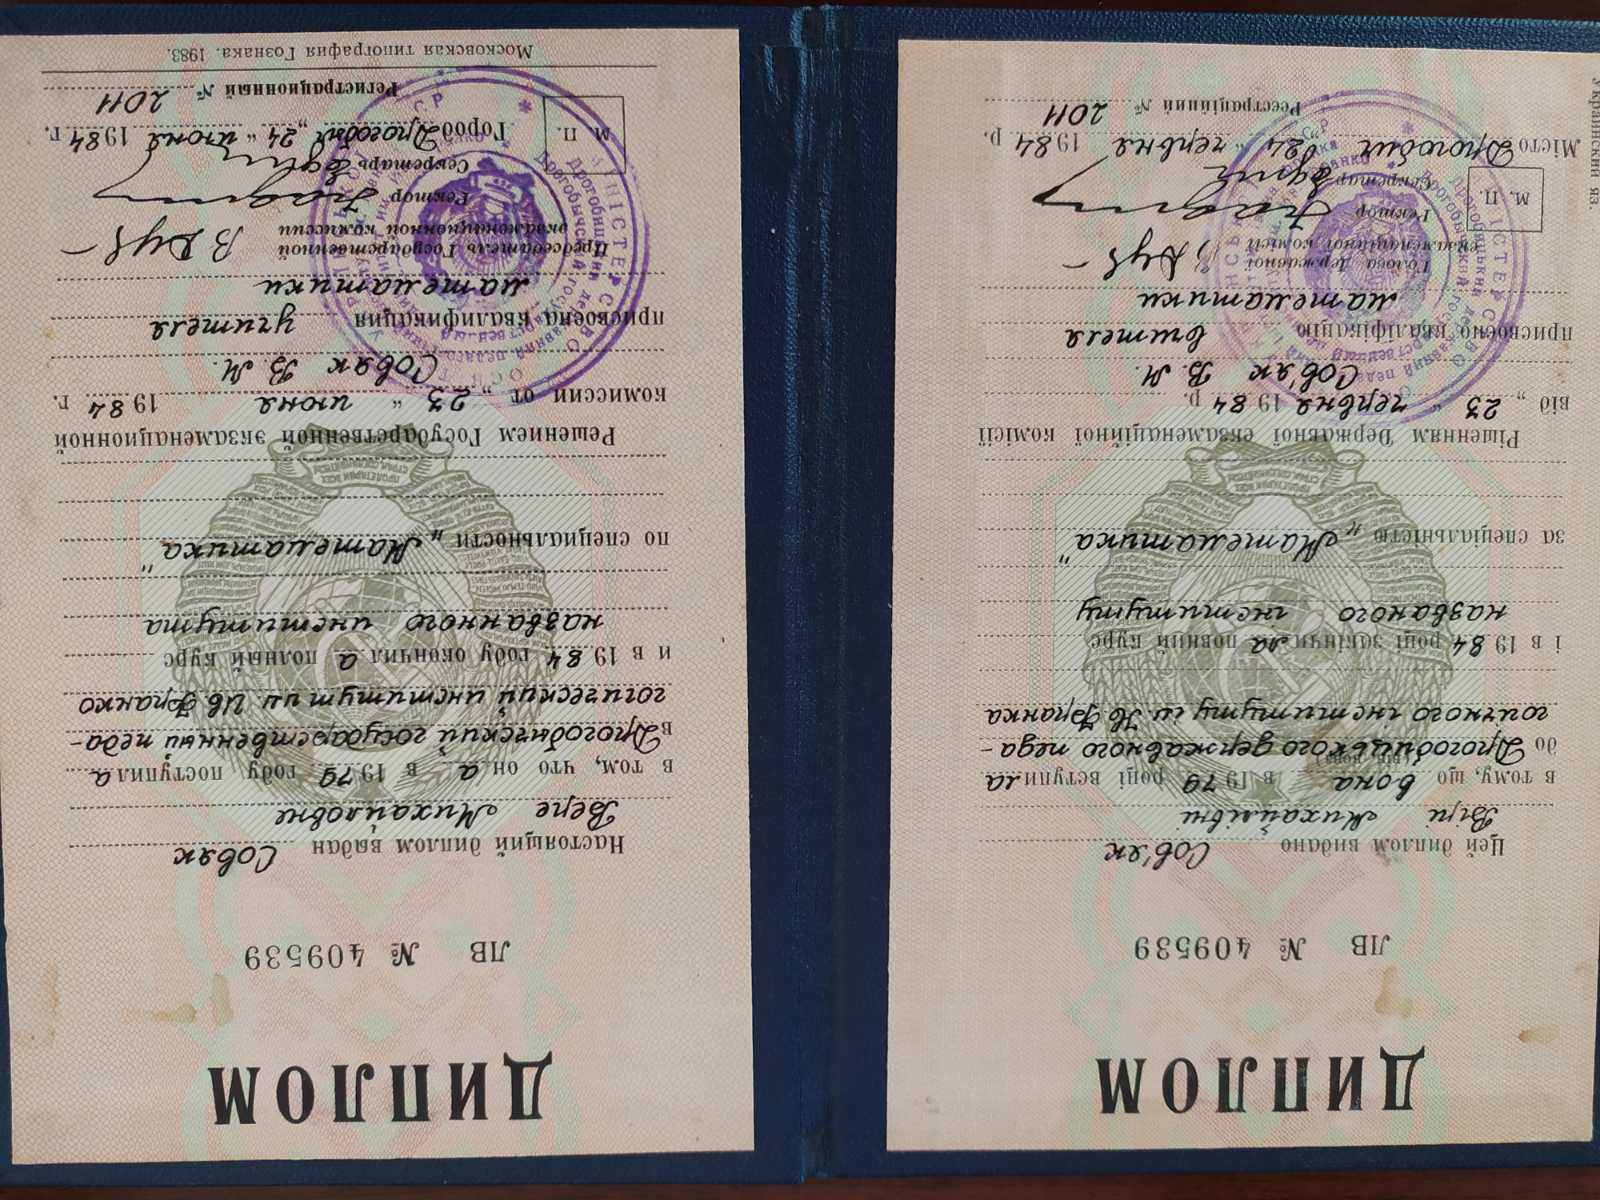 ДИПЛОМ
ЛВ № 409539
Цей диплом видано Сов'як
Вірі Михайлівні
в тому, що вона в 1979 році вступила
(він, вона)
до Дрогобицького державного педа-
гогічного інституту ім Ів Франка
і в 1984 році закінчила повний курс
названого інституту
за спеціальністю „Математика"
Рішенням Державної екзаменаційної комісії
від „23" червня 1984 р.
Сов'як В. М.
присвоєно кваліфікацію вчителя
математики
Голова Державної
екзаменаційної комісії
Ректор
Секретар
М. П.
Місто Дрогобич „24" червня 1984 р.
Реєстраційний № 2011
Украинский яз.
ДИПЛОМ
ЛВ № 409539
Настоящий диплом выдан Совяк
Вере Михайловне
в том, что она в 1979 году поступила
в Дрогобычский государственный педа-
гогический институт им Ив Франко
и в 1984 году окончила полный курс
названного института
по специальности „Математика"
Решением Государственной экзаменационной
комиссии от „23" июня 1984 г.
Совяк В. М.
присвоена квалификация учителя
математики
Председатель Государственной
экзаменационной комиссии
Ректор
Секретарь
М. П.
Город Дрогобыч „24" июня 1984 г.
Регистрационный № 2011
Московская типография Гознака. 1983.